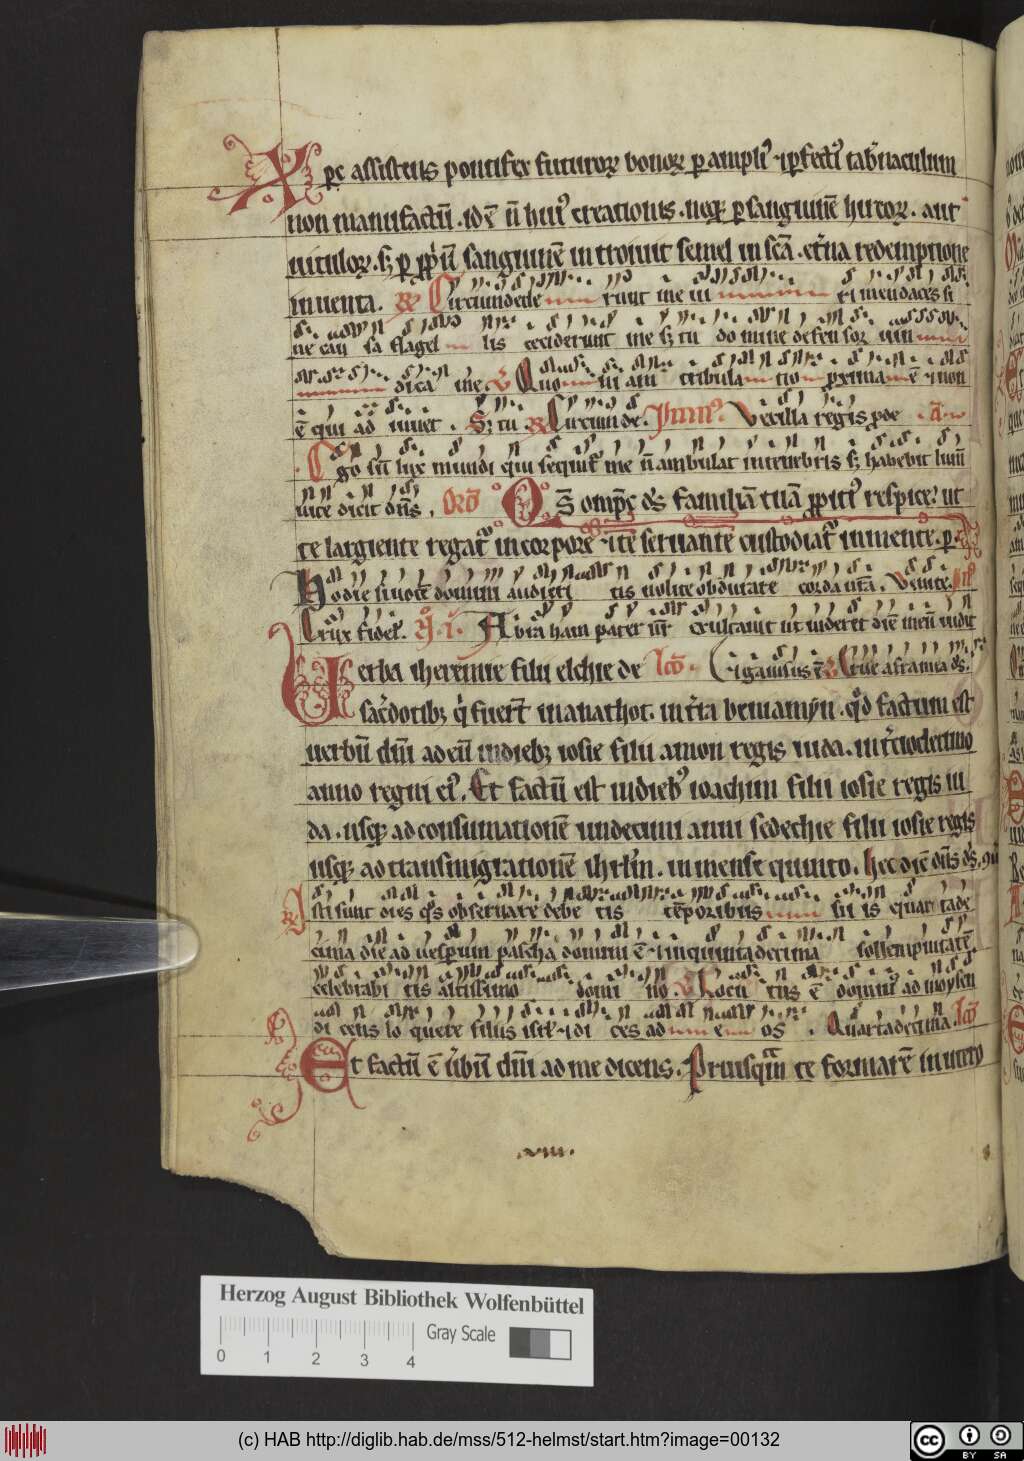 Xpc assistens pontifex futuroꝝ bonoꝝ ꝑ ampliꝰ ⁊ ꝑfectiꝰ tabnaculum
non manufactū . id ē n̄ huiꝰ creationis . neqꝫ ꝑ sanguinē hircoꝝ . aut
uituloꝝ . sꝫ ꝑ ꝓpriū sanguinē introiuit semel in scā . etna redemptione
inuenta . Circumdede runt me ui ri mendaces si
ne cau sa flagel lis ceciderunt me sꝫ tu do mine defensor uin
dica me . Quo ni am tribula tio ꝓxima ē ⁊ non
ē qui ad iuuet . Sꝫ tu . Circumde . Vexilla regis ꝓde .
Ego sū lux mundi qui sequit me n̄ ambulat in tenebris sꝫ habebit lum̄
uite dicit dn̄s . Or̄o Qs omps ds familiā tuā ꝓpitiꝰ respice ut
te largiente regat in corpore ⁊ te seruante custodiat in mente . ꝑ
Hodie si uocē domini audieri tis nolite obdurare corda urā . Venite .
Crux fidel . Abraham pater ur exultauit ut uideret diē meū uidit
Verba iheremie filii elchie de
sacdotibꝫ q fuert in anathot . in tra beniamyn . qd factum est
uerbū dni ad eū in diebꝫ iosie filii amon regis iuda . in tciodecimo
anno regni eiꝰ . Et factū est in diebꝰ ioachim filii iosie regis iu
da . usqꝫ ad consumationē undecimi anni sedechie filii iosie regis
usqꝫ ad transmigrationē ihrlm . in mense quinto . hec
Isti sunt dies qs obseruare debe tis temporibus su is quar tade
cima die ad uesꝑum pascha domini ē ⁊ in quintadecima sollempnitatē
celebrabi tis altissimo domi no . Locu tus ē dominꝰ ad moysen
di cens lo quere filiis isrl ⁊ di ces ad e os . Quartadecima .
Et factū ē ubū dni ad me dicens . Priusqm te formarē in utero
.viii.
Herzog August Bibliothek Wolfenbüttel
Gray Scale
0 1 2 3 4
(c) HAB http://diglib.hab.de/mss/512-helmst/start.htm?image=00132
cc BY SA